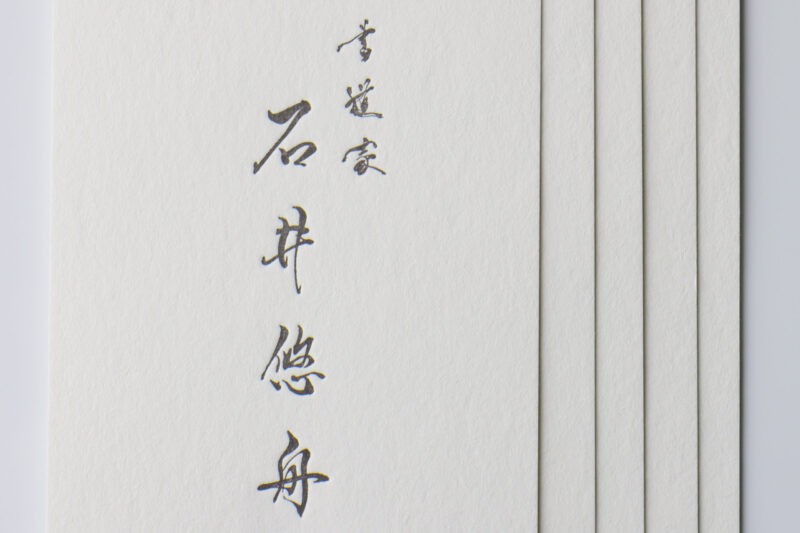 書道家
石井悠舟